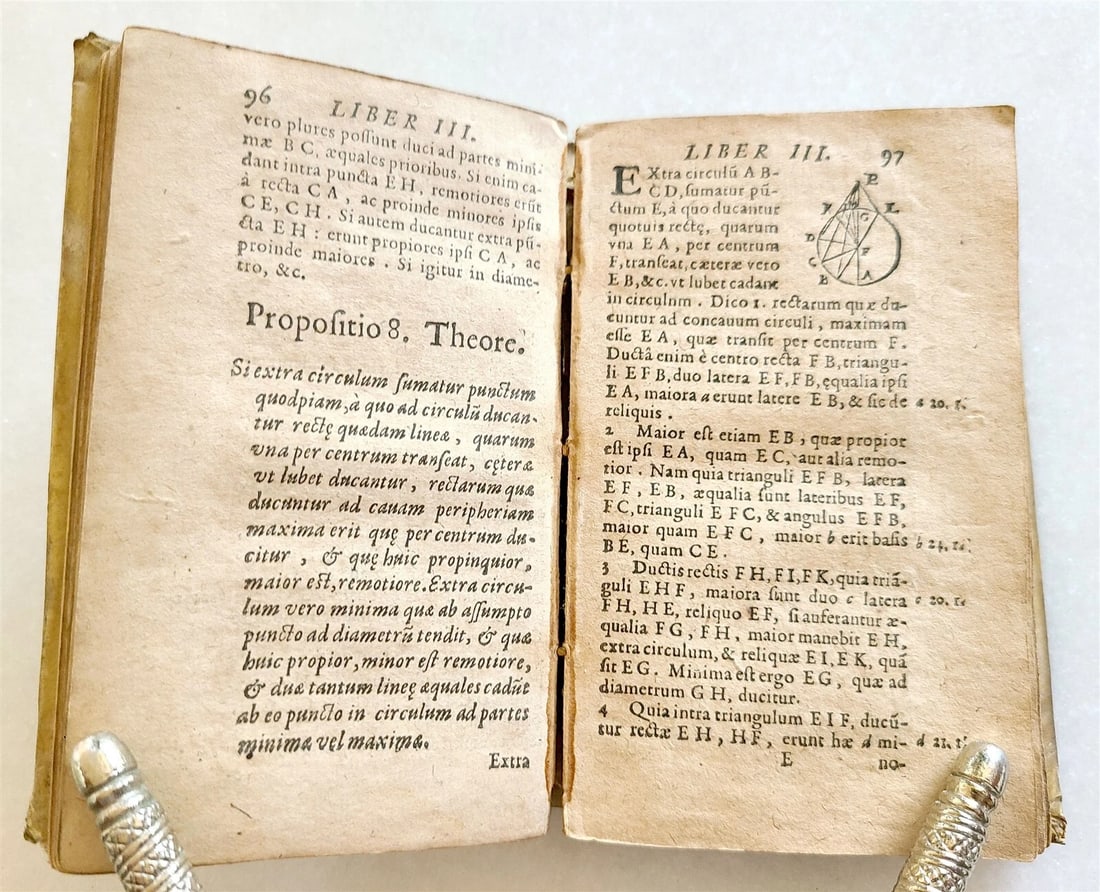 96 LIBER III.
vero plures poſſunt duci ad partes mini-
mæ B C, æquales prioribus. Si enim ca-
dant intra puncta E H, remotiores erũt
à recta C A, ac proinde minores ipſis
C E, C H. Si autem ducantur extra pũ-
cta E H: erunt propiores ipſi C A, ac
proinde maiores. Si igitur in diame-
tro, &c.
Propoſitio 8. Theore.
Si extra circulum ſumatur punctum
quodpiam, à quo ad circulũ ducan-
tur rectę quædam lineæ, quarum
vna per centrum tranſeat, cęteræ
vt lubet ducantur, rectarum quæ
ducuntur ad cauam peripheriam
maxima erit quę per centrum du-
citur, & quę huic propinquior,
maior eſt, remotiore. Extra circu-
lum vero minima quæ ab aſſumpto
puncto ad diametrũ tendit, & quæ
huic propior, minor eſt remotiore,
& duæ tantum lineę æquales cadũt
ab eo puncto in circulum ad partes
minimæ vel maximę.
Extra
LIBER III. 97
EXtra circulũ A B-
C D, ſumatur pũ-
ctum E, à quo ducantur
quotuis rectę, quarum
vna E A, per centrum
F, tranſeat, cæteræ vero
E B, &c. vt lubet cadant
in circulum. Dico 1. rectarum quæ du-
cuntur ad concauum circuli, maximam
eſſe E A, quæ tranſit per centrum F.
Ductâ enim è centro recta F B, triangu-
li E F B, duo latera E F, F B, ęqualia ipſi
E A, maiora a erunt latere E B, & ſic de a 20. 1.
reliquis.
2 Maior eſt etiam E B, quæ propior
eſt ipſi E A, quam E C, aut alia remo-
tior. Nam quia trianguli E F B, latera
E F, E B, æqualia ſunt lateribus E F,
F C, trianguli E F C, & angulus E F B,
maior quam E F C, maior b erit baſis b 24. 1.
B E, quam C E.
3 Ductis rectis F H, F I, F K, quia triã-
guli E H F, maiora ſunt duo c latera c 20. 1.
F H, H E, reliquo E F, ſi auferantur æ-
qualia F G, F H, maior manebit E H,
extra circulum, & reliquæ E I, E K, quã
ſit E G. Minima eſt ergo E G, quæ ad
diametrum G H, ducitur.
4 Quia intra triangulum E I F, ducũ-
tur rectæ E H, H F, erunt hæ d mi- d 21. 1.
E no-